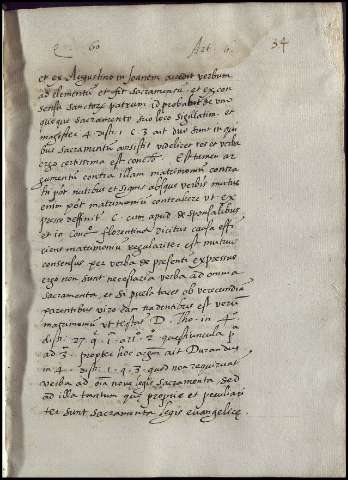 Q. 60 Art. 6. 34
et ex Augustino in Joanem accedit verbum
ad elementum et fit sacramentū. et ex con
sensu sanctorȝ patrum id probabit de vno
quoque sacramento suo loco sigillatim. et
magister 4. dist. 1. c. 3 ait duo sunt in qui
bus sacramentū consistit videlicet res et verba
ergo certissima est concl. Est tamen ar
gumentū contra illam matrimonium contra
hi pōt nutibus et signis absque verbis mutus
enim pōt matrimoniū contraere vt ex
presse deffinit c. cum apud de sponsalibus
et in Conc. florentino dicitur causa effi
ciens matrimoniū regulariter est mutuus
consensus per verba de presenti expressus
ergo non sunt necessaria verba ad omnia
sacramenta, et si puela tacet ob verecundiā
parentibus viro eam tradentibus est verū
matrimoniū vt testatur D. Tho. in 4.
dist. 27. q. 1. art. 2. questiuncula 2ª
ad 3. propter hoc argm ait Durandus
in 4. dist. 1. q. 3. quod non requiruntur
verba ad oīa noue legis sacramenta sed
ad illa tantum que proprie et peculiari
ter sunt sacramenta legis euangelice.